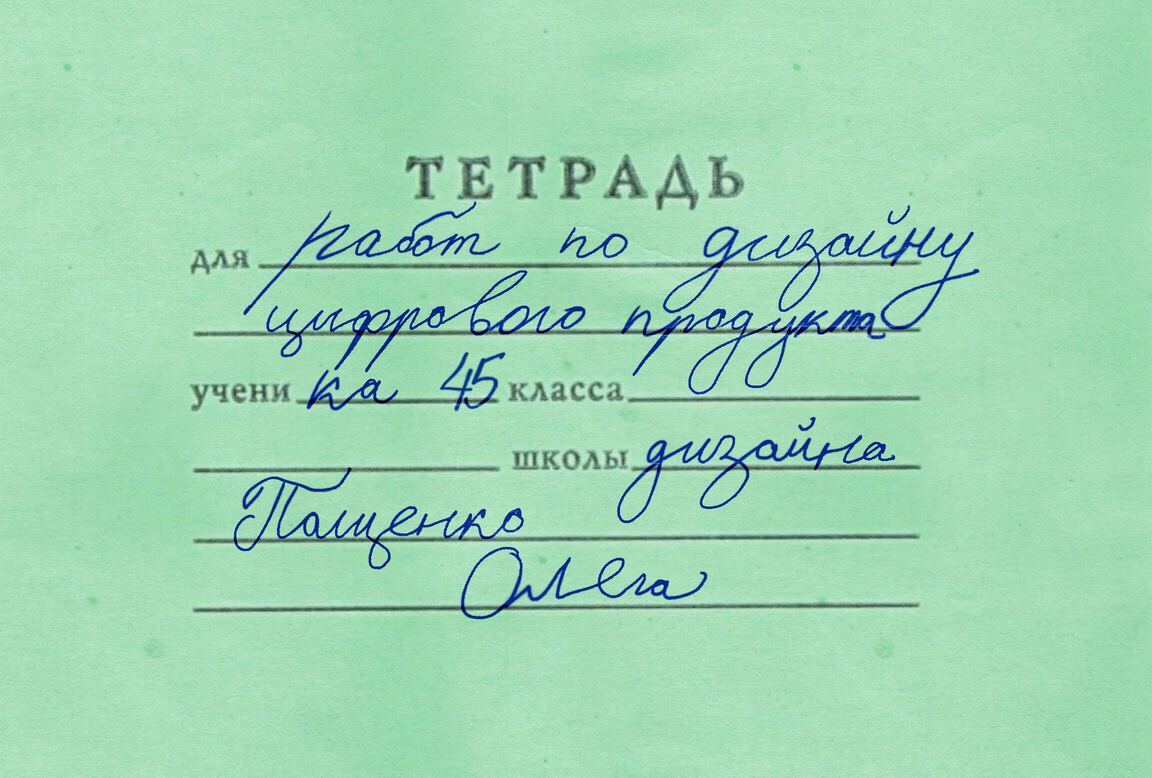 ТЕТРАДЬ
для работ по дизайну
цифрового продукта
ученика 45 класса
школы дизайна
Пащенко
Олега